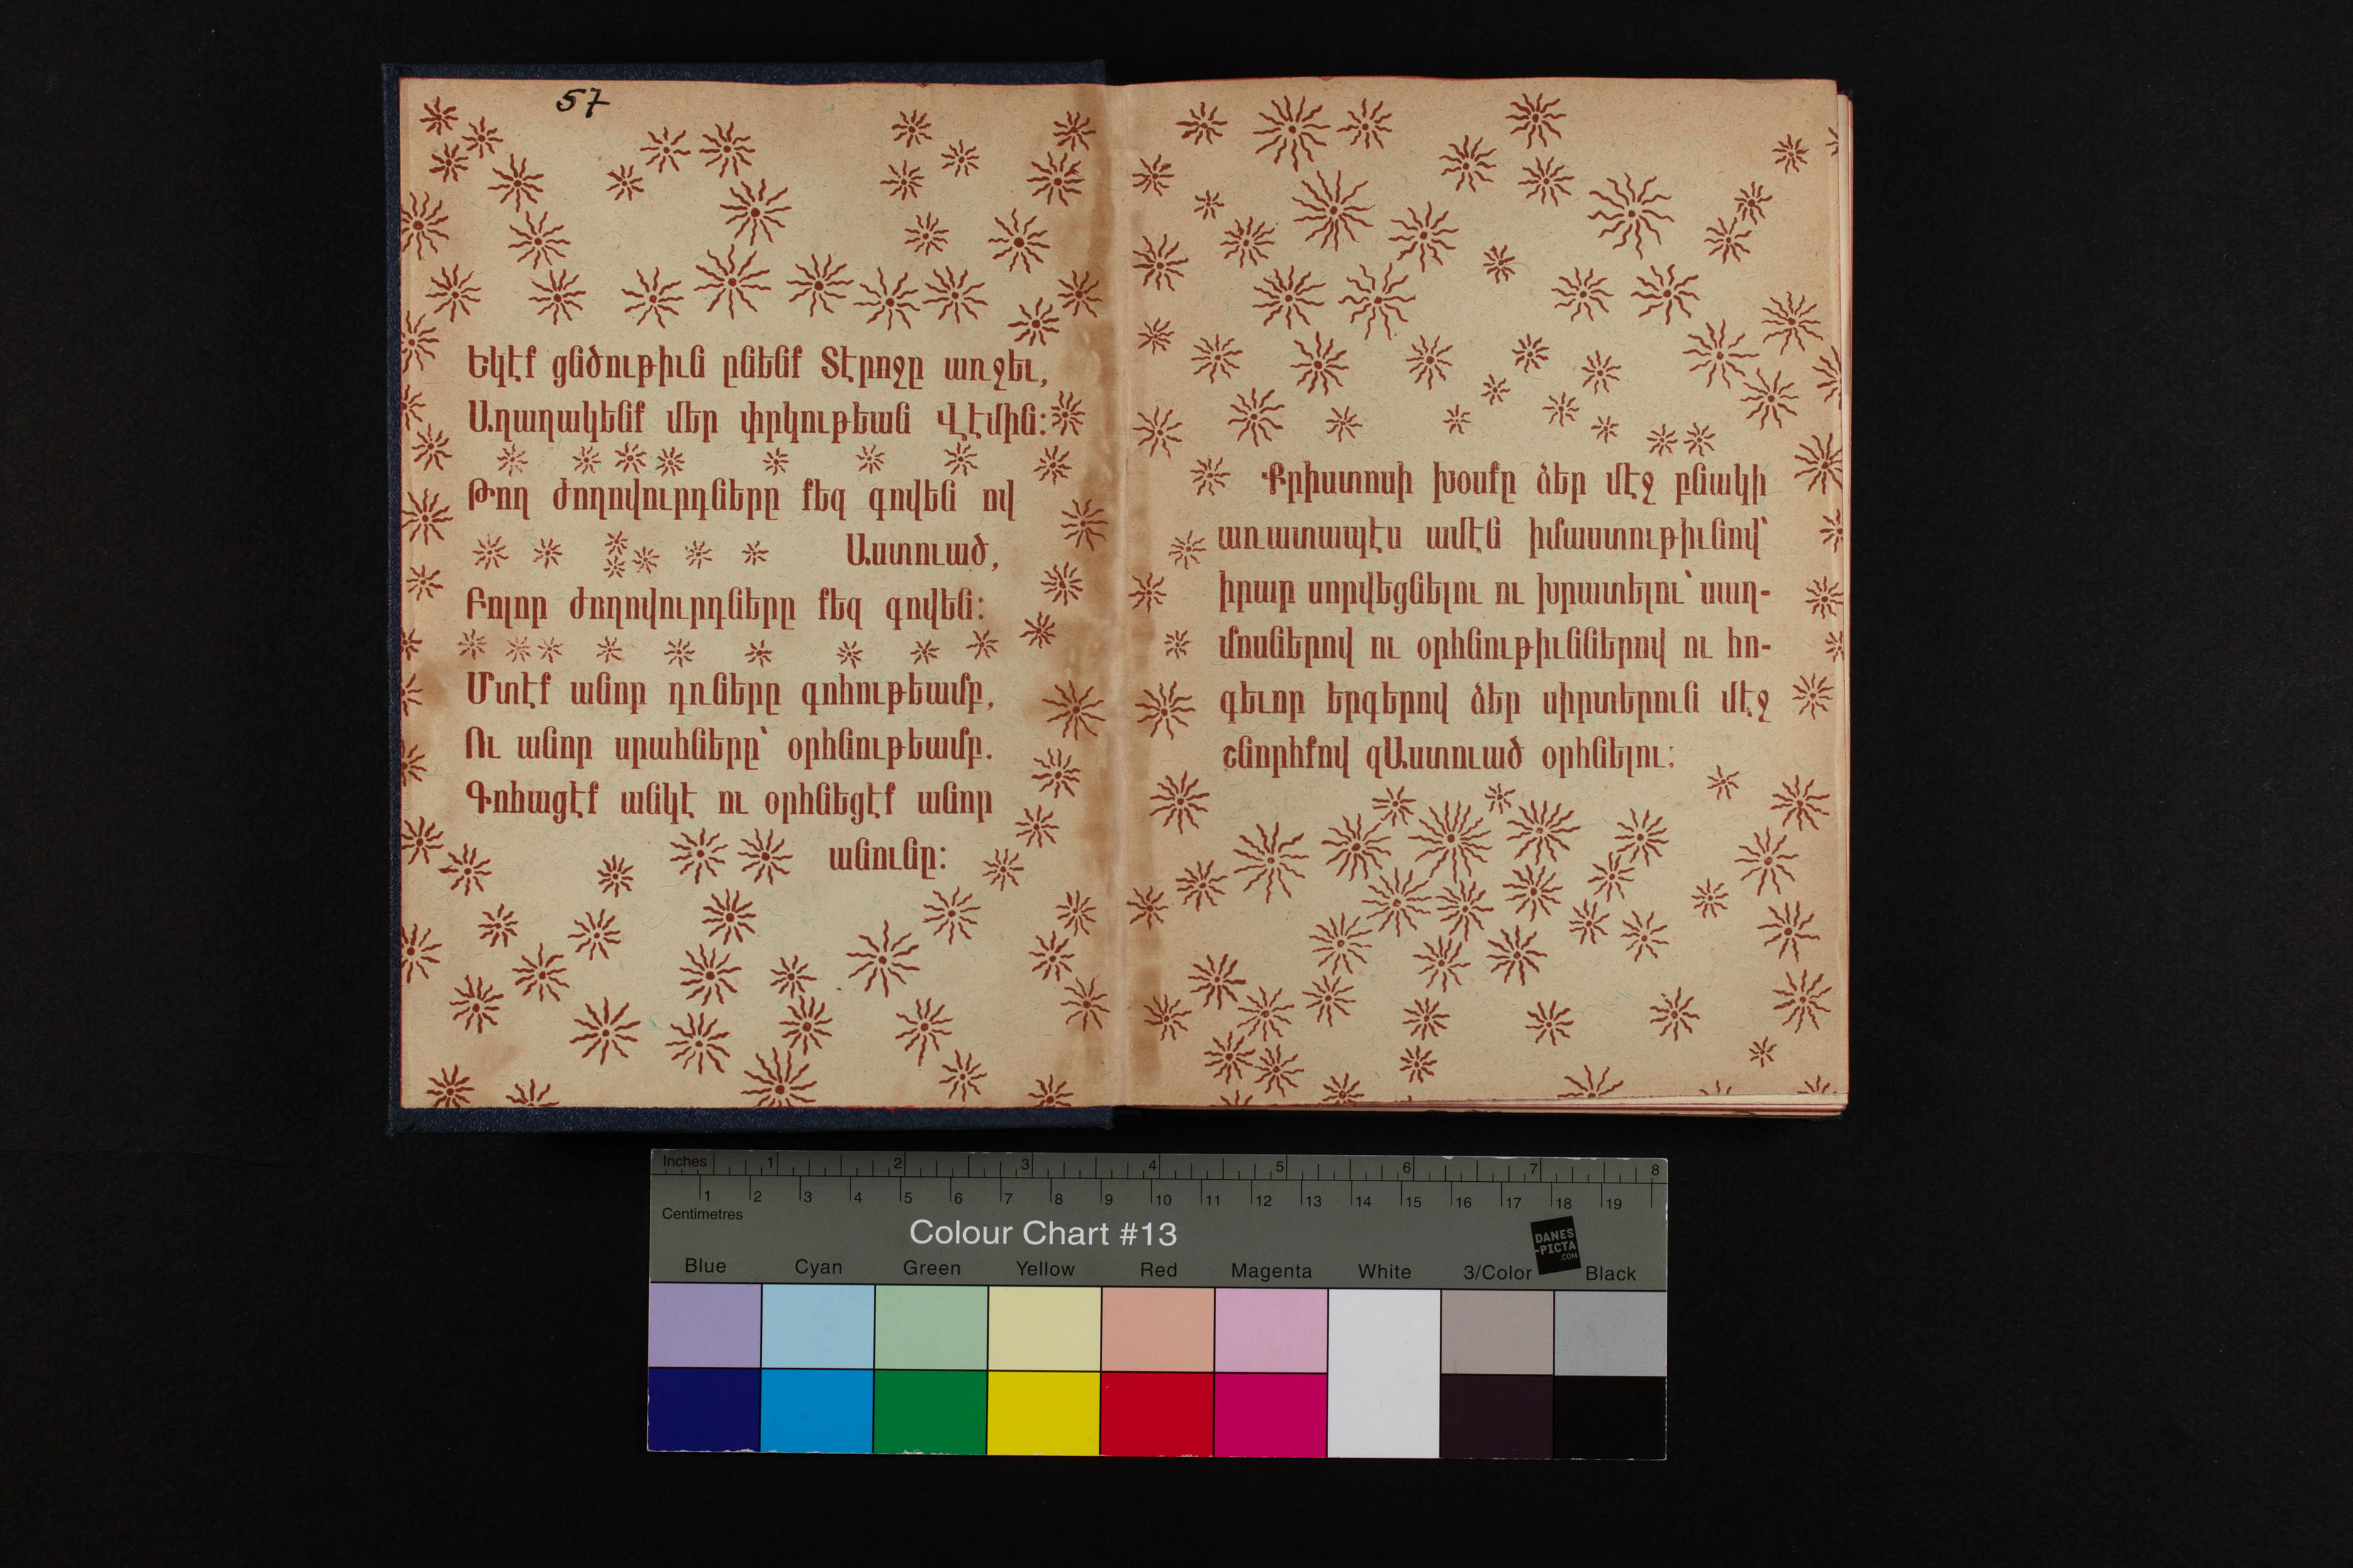 57
Եկէք ցնծութիւն ընենք Տէրոջը առջեւ,
Աղաղակենք մեր փրկութեան Վէմին։
Թող ժողովուրդները քեզ գովեն ով
Աստուած,
Բոլոր ժողովուրդները քեզ գովեն։
Մտէք անոր դռները գոհութեամբ,
Ու անոր սրահները՝ օրհնութեամբ.
Գոհացէք անկէ ու օրհնեցէք անոր
անունը։
Քրիստոսի խօսքը ձեր մէջ բնակի
առատապէս ամէն իմաստութիւնով՝
իրար սորվեցնելու ու խրատելու՝ սաղ-
մոսներով ու օրհնութիւններով ու հո-
գեւոր երգերով ձեր սիրտերուն մէջ
շնորհքով զԱստուած օրհնելու։
Inches 1 2 3 4 5 6 7 8
1 2 3 4 5 6 7 8 9 10 11 12 13 14 15 16 17 18 19
Centimetres
Colour Chart #13
DANES
-PICTA
.COM
Blue Cyan Green Yellow Red Magenta White 3/Color Black